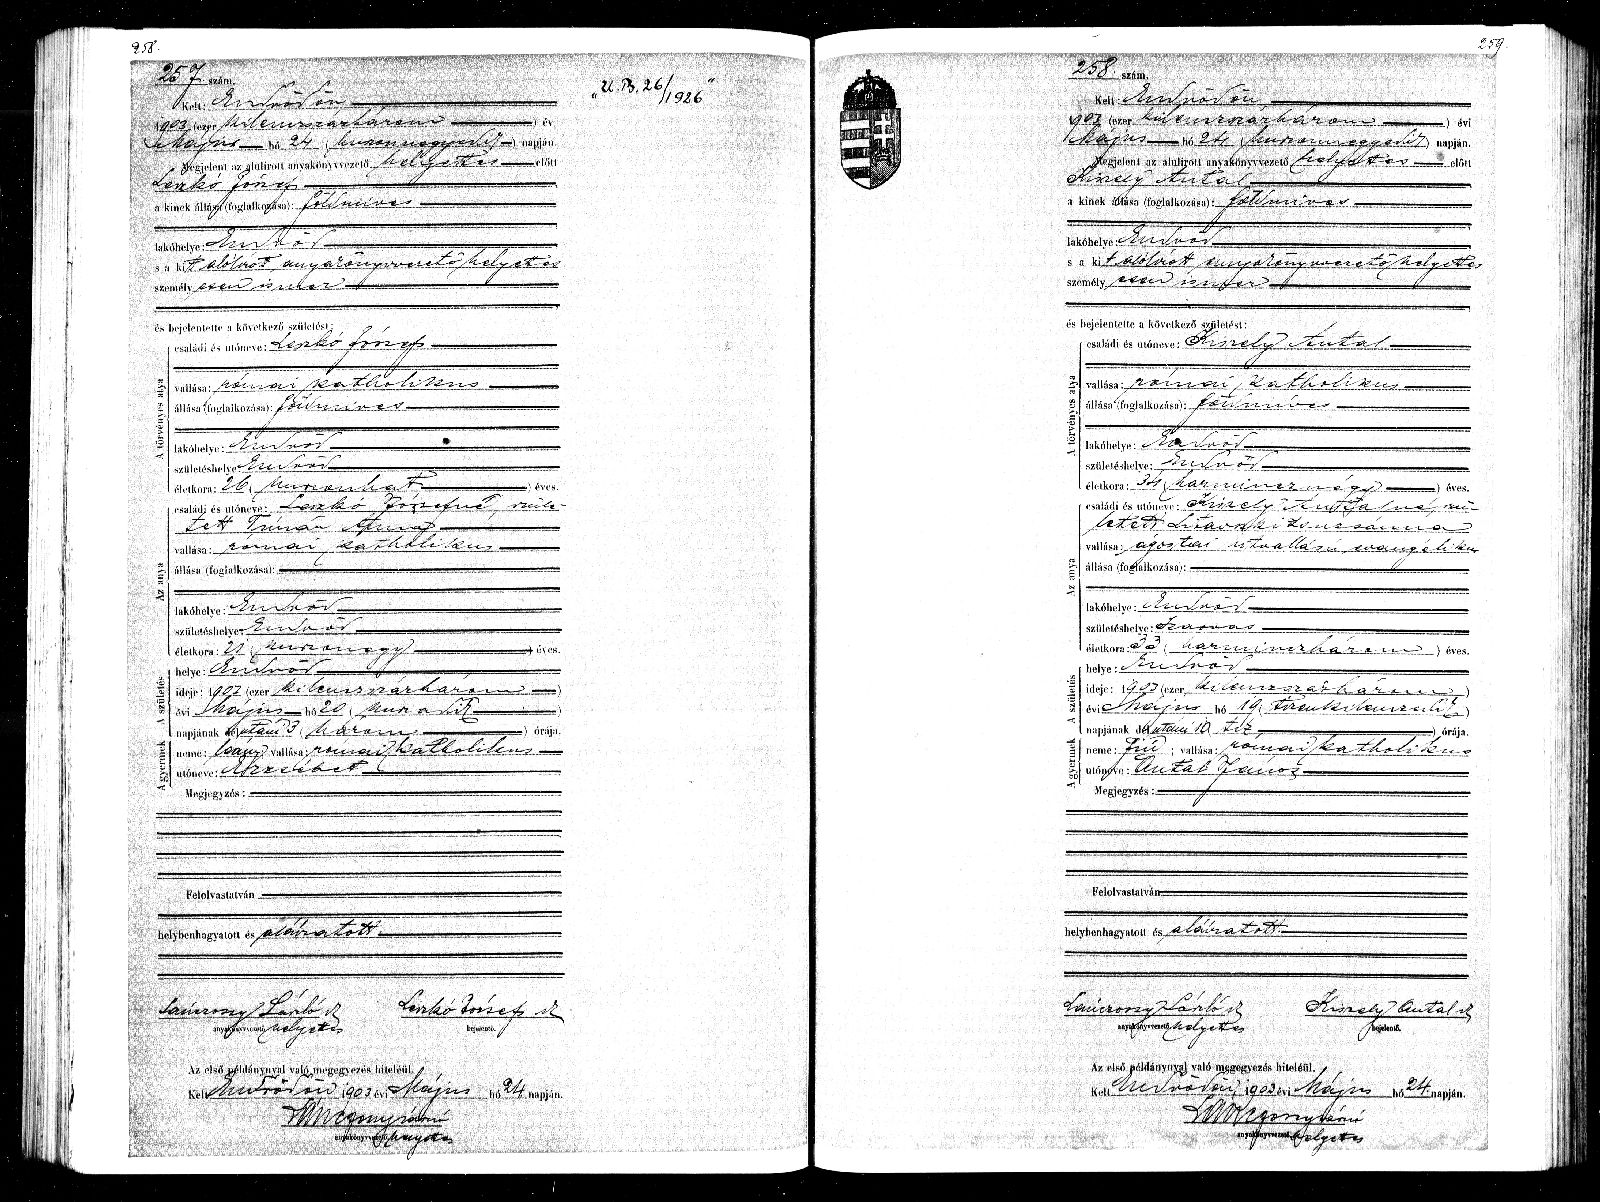 258.
257. szám.
„U. B. 26/1926"
Kelt: Endrődön
1903 (ezer kilenczszázhárom) év
Május hó 24 (huszonnegyedik) napján.
Megjelent az alulirott anyakönyvvezető helyettes előtt
Leszkó József
a kinek állása (foglalkozása): földmives
lakóhelye: Endrőd
s a kit alólirott anyakönyvvezető helyettes
személyesen ismer
és bejelentette a következő születést:
A törvényes atya
családi és utóneve: Leszkó József
vallása: római katholikus
állása (foglalkozása): földmives
lakóhelye: Endrőd
születéshelye: Endrőd
életkora: 26 (huszonhat) éves.
Az anya
családi és utóneve: Leszkó Józsefné, szüle-
tett Timár Anna
vallása: római katholikus
állása (foglalkozása):
lakóhelye: Endrőd
születéshelye: Endrőd
életkora: 21 (huszonegy) éves.
A születés
helye: Endrőd
ideje: 1903 (ezer kilenczszázhárom)
évi Május hó 20 (huszadik)
napjának délutáni 3 (három) órája.
A gyermek
neme: leány vallása: római katholikus
utóneve: Erzsébet
Megjegyzés:
Felolvastatván
helybenhagyatott és aláiratott
László Leszkó József
anyakönyvvezető helyettes bejelentő.
Az első példánynyal való megegyezés hiteléül.
Kelt Endrődön, 1903 évi Május hó 24 napján.
anyakönyvvezető helyettes
259.
258. szám.
Kelt: Endrődön
1903 (ezer kilenczszázhárom) évi
Május hó 24 (huszonnegyedik) napján.
Megjelent az alulirott anyakönyvvezető helyettes előtt
Kiszely Antal
a kinek állása (foglalkozása): földmives
lakóhelye: Endrőd
s a kit alólirott anyakönyvvezető helyettes
személyesen ismer
és bejelentette a következő születést:
A törvényes atya
családi és utóneve: Kiszely Antal
vallása: római katholikus
állása (foglalkozása): földmives
lakóhelye: Endrőd
születéshelye: Endrőd
életkora: 34 (harmincznégy) éves.
Az anya
családi és utóneve: Kiszely Antalné, szü-
letett Zsuzsánna
vallása: ágostai hitvallású evangélikus
állása (foglalkozása):
lakóhelye: Endrőd
születéshelye: Szarvas
életkora: 33 (harminczhárom) éves.
A születés
helye: Endrőd
ideje: 1903 (ezer kilenczszázhárom)
évi Május hó 19 (tizenkilenczedik)
napjának délutáni 10 tiz órája.
A gyermek
neme: fiú; vallása: római katholikus
utóneve: Antal János
Megjegyzés:
Felolvastatván
helybenhagyatott és aláiratott
László Kiszely Antal
anyakönyvvezető helyettes bejelentő.
Az első példánynyal való megegyezés hiteléül.
Kelt Endrődön, 1903 évi Május hó 24 napján.
anyakönyvvezető helyettes